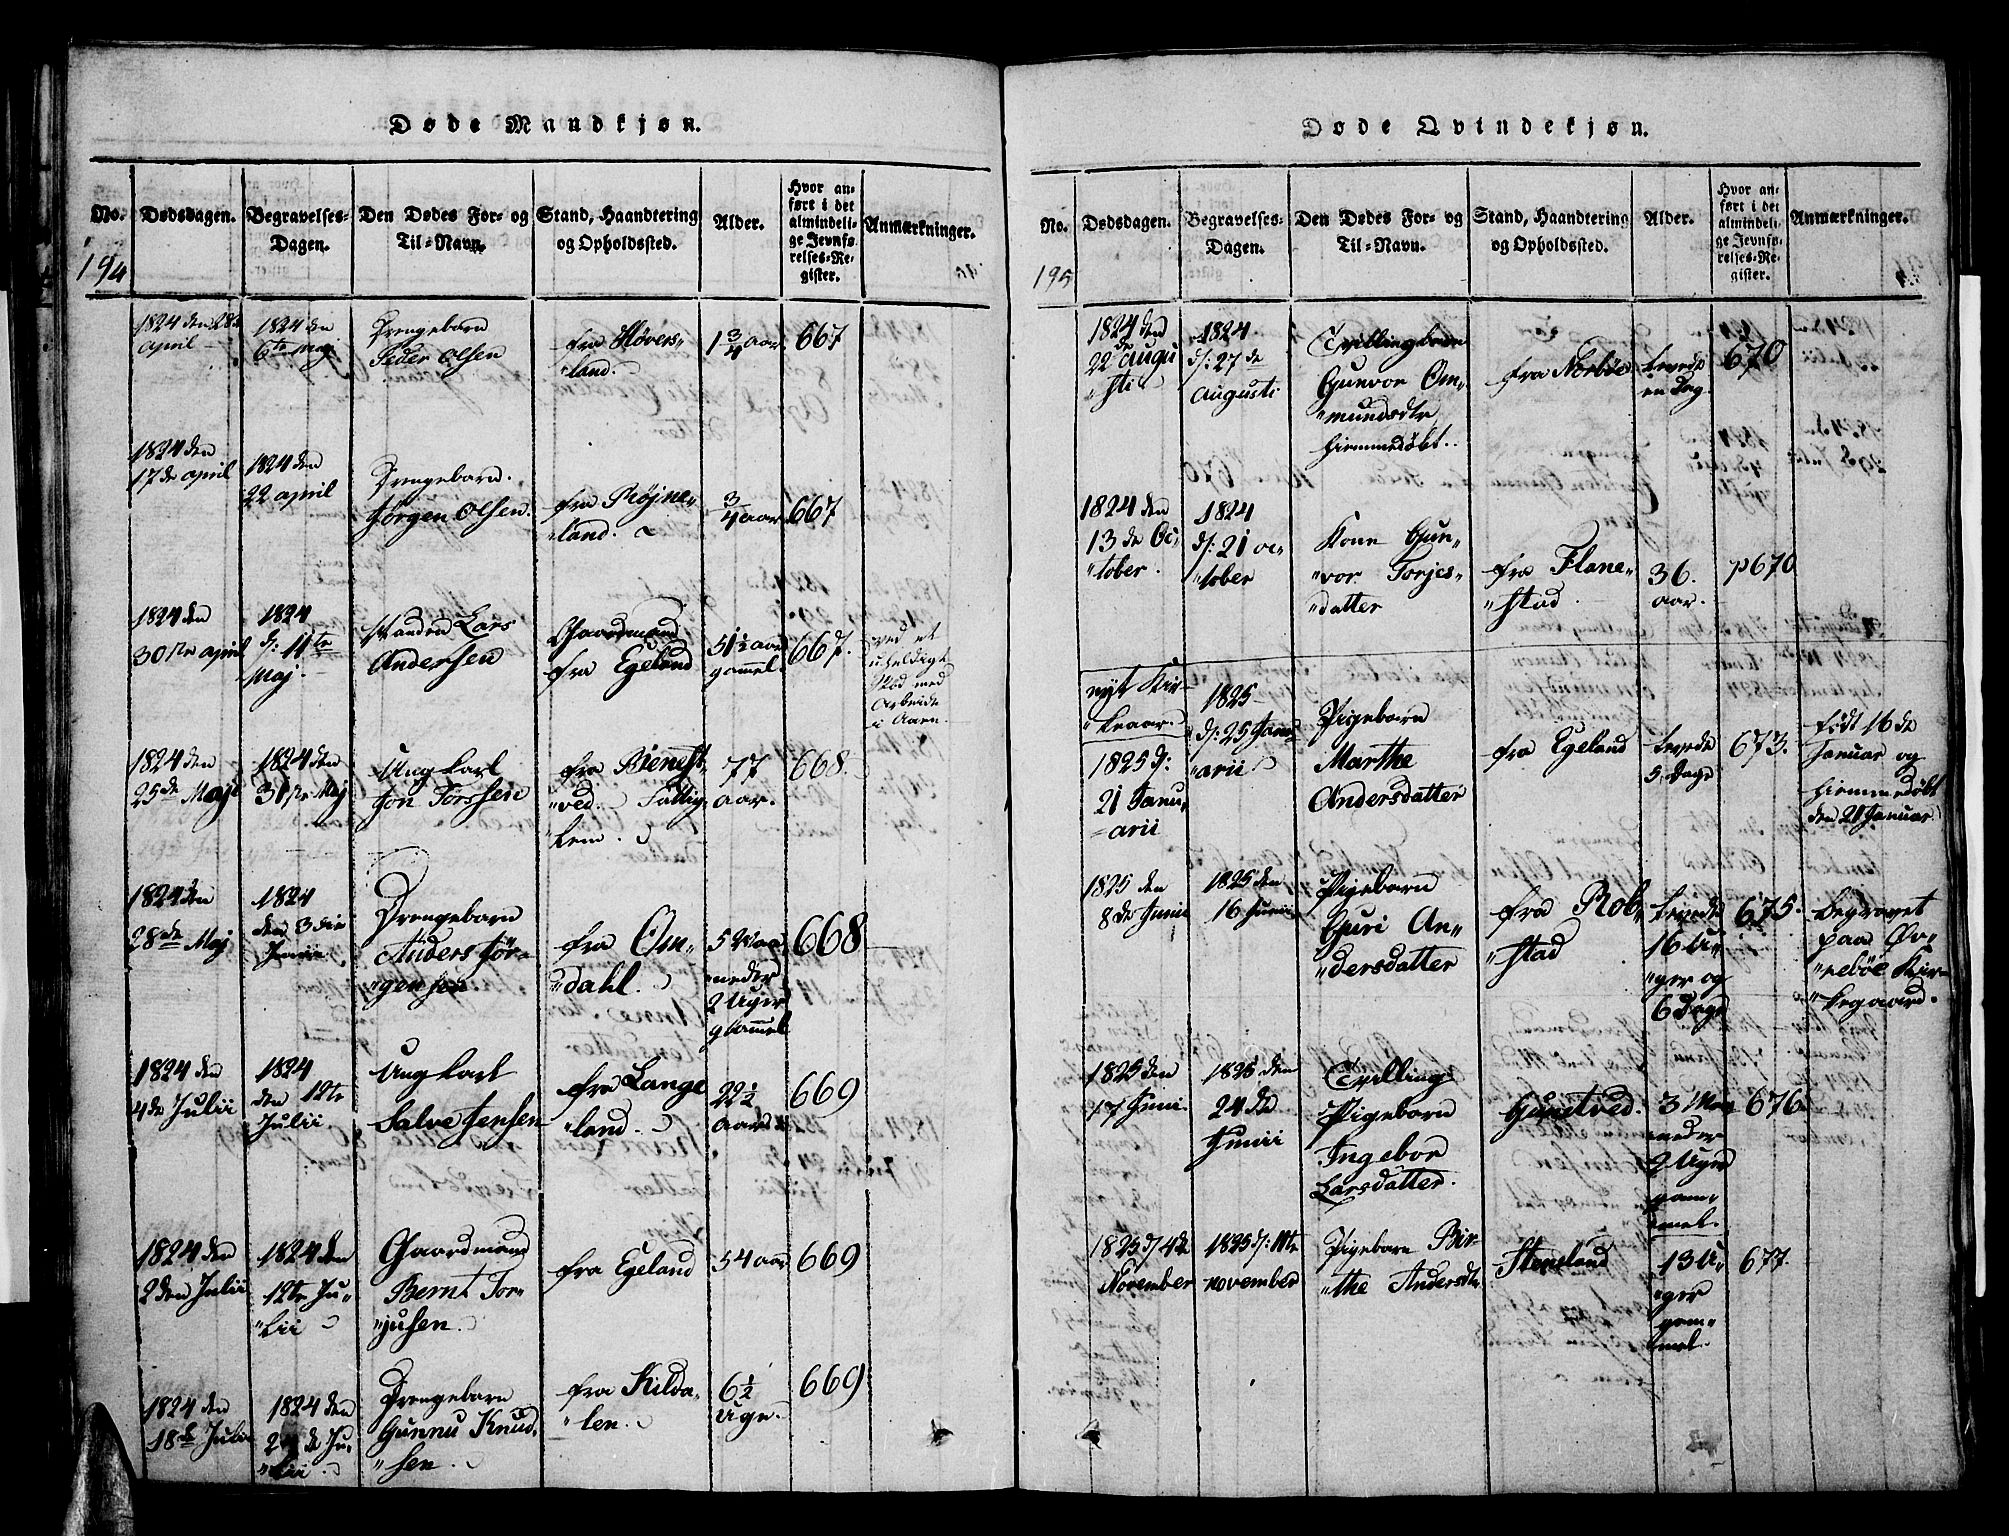 Døde Mandkjøn.
No. Dødsdagen. Begravelses-Dagen. Den Dødes For- og Til-Navn. Stand, Haandtering og Opholdssted. Alder. Hvor anført i det almindelige Jevnførelses-Register. Anmærkninger.
194
1824 den 28de
april
1824 den
6te Maj
Drengebarn
Peder Olsen
fra Høvers-
"land.
1 3/4 aar
667
1824 den
17de april
1824 den
22 april
Drengebarn.
Jørgen Olsen.
fra Røjne-
"land.
3/4 aar
667
1824 den
30te april
1824
d: 11te
Maj.
Manden Lars
Andersen
Gaardmand
fra Egeland
51 1/2 aar
gammel.
667.
ved et
uheldigt
Stød med
Arbeide
i Aaen
1824 den
25de Maji
1824 den
31te Maj
Ung karl
Jon Torssen
fra Bienest-
"ved. Fattig-
lem.
77
aar.
668.
1824 den
28de Maj
1824
den 3die
Junii.
Drengebarn
Anders Jør-
"gensen
fra Om-
"dahl.
5 Maa-
neder
2 Uger
gammel
668
1824 den
4de Julii
1824
den 12te
Julii.
Ung karl
Salve Jensen
fra Lange
"land.
22 1/2
aar
669
1824 den
2den Julii
1824 den
12te Ju-
"lii
Gaardmand
Bernt Tor-
"jusen.
fra Egeland
54 aar
669
1824 den
18de Julii
1824 den
24de Ju-
"lii.
Drengebarn
Gunnu Knud-
"sen.
fra Kilda-
"len.
6 1/2
Uge.
669
Døde Qvindekjøn.
No. Dødsdagen. Begravelses-Dagen. Den Dødes For- og Til-Navn. Stand, Haandtering og Opholdssted. Alder. Hvor anført i det almindelige Jevnførelses-Register. Anmærkninger.
195
1824 den
22de Augu
"sti
1824
d: 27de
Augusti
Tvillingbarn
Gunvor Om-
"mundsdtr
hiemmedøbt.
fra Norbøe
levede
en dag.
670
1824 den
13de Oc-
"tober.
1824
d: 21 oc-
"tober
Kone Gun-
"vor Torjes-
"datter
fra Flane-
"stad.
36.
aar.
p670
nyt Kir-
"keaar.
1825 d:
21 Janu-
"arii
1825
d: 25 Janu-
"arii.
Pigebarn
Marthe
Andersdatter
fra Egeland
levede
5 dage
673.
født 16de
Januar og
hiemmedøbt
den 21 Januar.
1825 den
8de Junii
1825 den
16 Junii
Pigebarn
Guri An-
"dersdatter
fra Rob-
"stad
levede
16 U-
"ger og
6 Dage
675.
begravet
paa Øv-
"rebøe Kir-
"kegaard.
1825 den
17 Junii.
1825 den
24de
Junii
Tvilling
Pigebarn
Ingebor
Larsdatter.
3 Maa-
neder
2 Uger
gam-
"mel.
676
1825 d/ 4de
November
1825 d: 11te
november
Pigebarn Bir-
"the Andersdtr
Steneland
13 U-
"ger
gam-
"mel.
677.